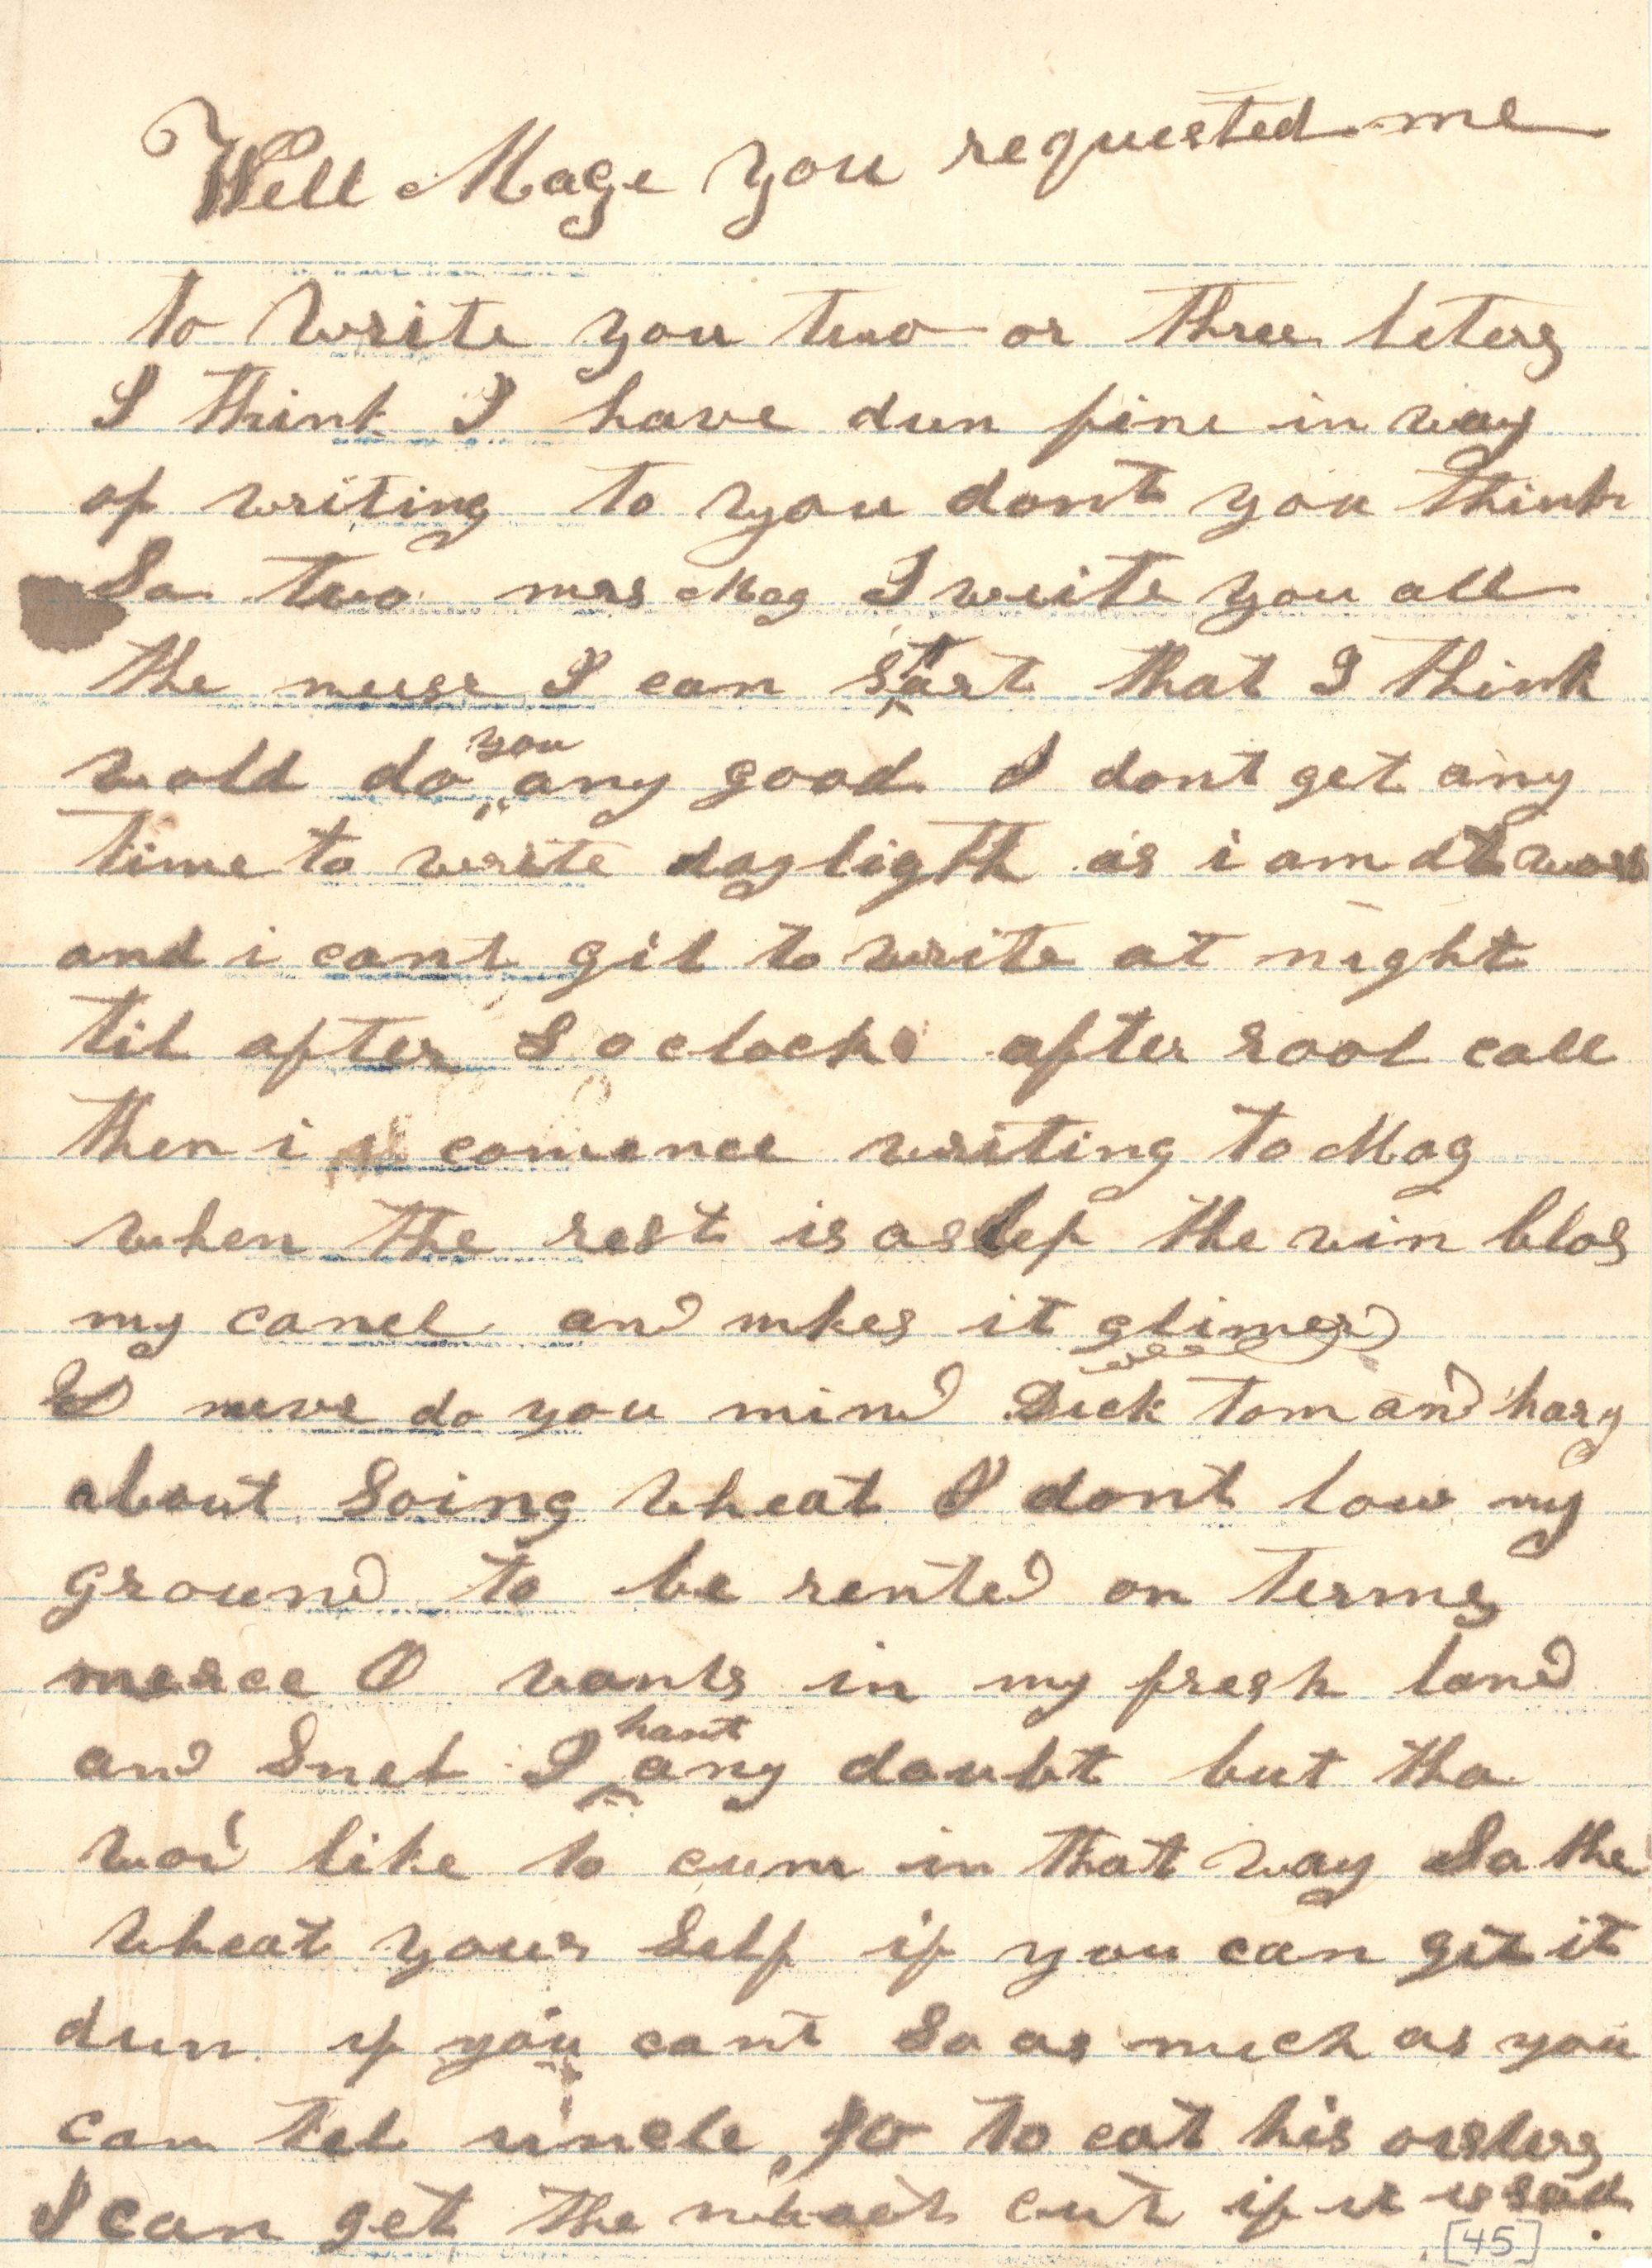 Well Mage you requested me
to write you two or three leters
I think I have dun fine in way
of writing to you dont you think
So two mrs Mag I write you all
the nuse I can start that I think
wold do you any good I dont get any
time to write dayligth as i am at work
and i cant git to write at night
til after 8 oclock after rool call
then i comence writing to Mag
when the rest is aslep the win blos
my canel and mkes it glimer
I do you mind Dick tom and hary
about Soing wheat I dont low my
ground to be rented on terms
merce O wants in my fresh land
and Snel I hant any doubt but tha
wod like to cum in that way So the
wheat your Self if you can git it
dun if you cant So as much as you
can tel uncle Jo to eat his oisters
I can get the wheat cut if it is sod
[45]